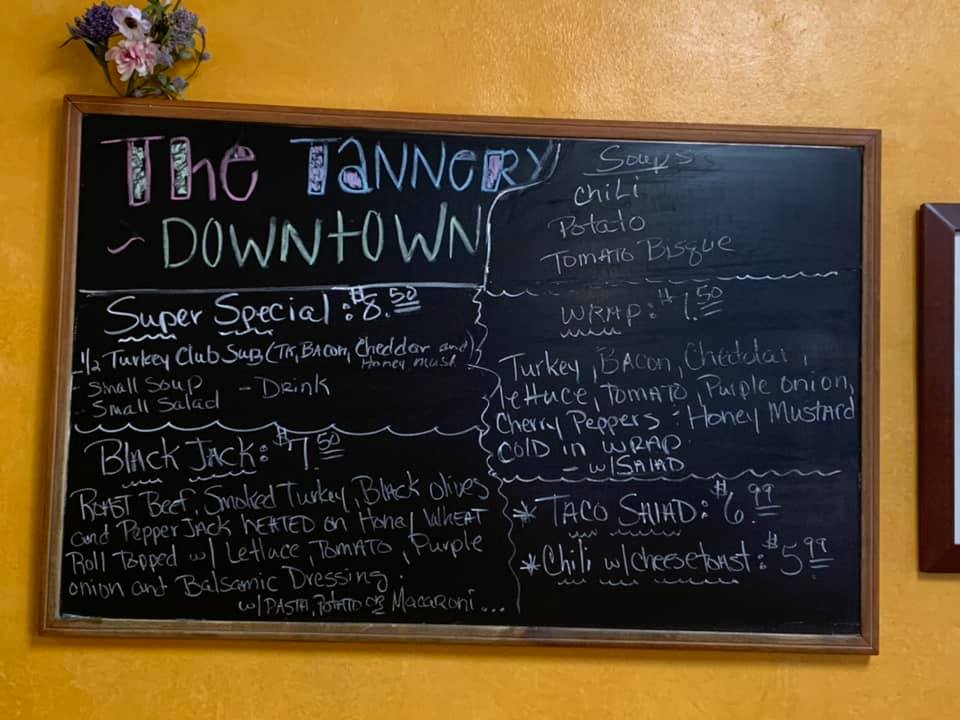 The TANNERY
~ DOWNTOWN
Super Special: $8.50
1/2 Turkey Club Sub (TK, BACON, Cheddar and
Honey Must.
- Small Soup - Drink
Small Salad
Black Jack: $7.50
ROAST Beef, Smoked Turkey, Black olives
and Pepper JACK HEATED on Honey WHEAT
Roll Topped w/ Lettuce, TOMATO, Purple
onion and Balsamic Dressing.
w/ PASTA, POTATO OR Macaroni...
Soups
ChiLi
Potato
TOMATO Bisque
WRAP: $7.50
Turkey, BACON, Cheddar,
lettuce, TOMATO, Purple onion,
Cherry Peppers : Honey Mustard
COLD in WRAP
- w/SALAD
* TACO SALAD: $6.99
* Chili w/cheesetoast: $5.99